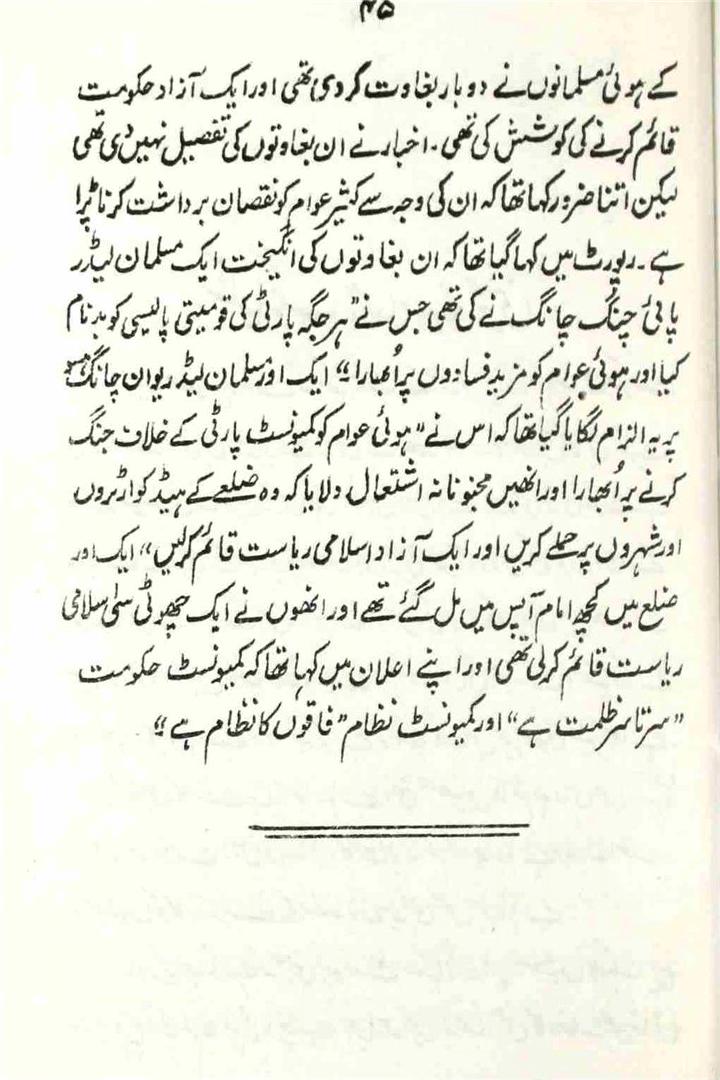 ۴۵
کے ہوئی مسلمانوں نے دو بار بغاوت کر دی تھی اور ایک آزاد حکومت
قائم کرنے کی کوشش کی تھی۔ اخبار نے ان بغاوتوں کی تفصیل نہیں دی تھی
لیکن اتنا ضرور کہا تھا کہ ان کی وجہ سے کثیر عوام کو نقصان برداشت کرنا پڑا
ہے۔ رپورٹ میں کہا گیا تھا کہ ان بغاوتوں کی انگیخت ایک مسلمان لیڈر
پائی چنگ چانگ نے کی تھی جس نے ”ہر جگہ پارٹی کی قومیتی پالیسی کو بدنام
کیا اور ہوئی عوام کو مزید فسادوں پر اُبھارا“۔ ایک اور مسلمان لیڈر یوان چانگ
پر یہ الزام لگایا گیا تھا کہ اس نے ”ہوئی عوام کو کمیونسٹ پارٹی کے خلاف جنگ
کرنے پر اُبھارا اور انھیں مجنونانہ اشتعال دلایا کہ وہ ضلعے کے ہیڈ کوارٹروں
اور شہروں پر حملے کریں اور ایک آزاد اسلامی ریاست قائم کر لیں“ ایک اور
ضلع میں کچھ امام آپس میں مل گئے تھے اور انھوں نے ایک چھوٹی سی اسلامی
ریاست قائم کر لی تھی اور اپنے اعلان میں کہا تھا کہ کمیونسٹ حکومت
”سرتاسر ظلمت ہے“ اور کمیونسٹ نظام ”فاقوں کا نظام ہے“۔